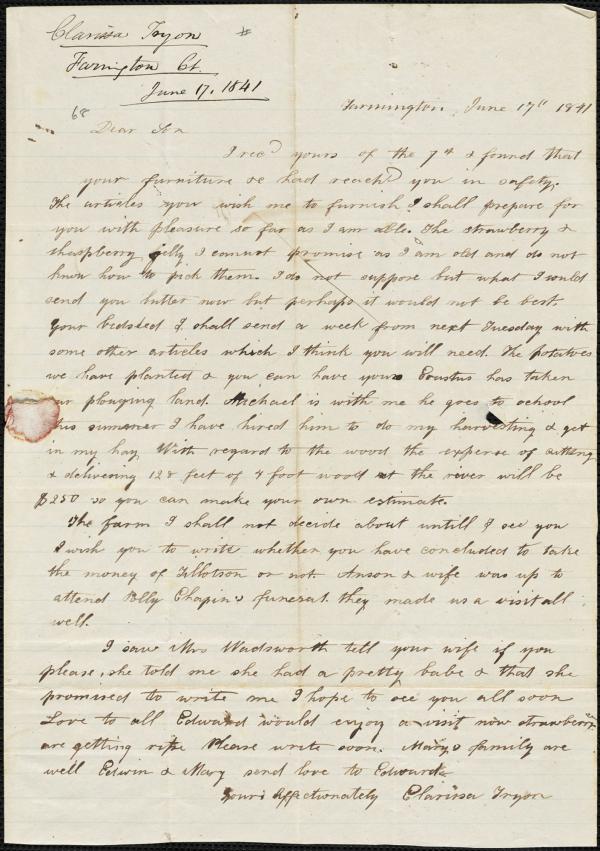 Clarissa Tryon #
Farmington Ct.
June 17, 1841
68
Farmington, June 17th 1841
Dear Son
I recd yours of the 7th & found that
your furniture &c had reachd you in safety.
The articles you wish me to furnish I shall prepare for
you with pleasure so far as I am able. The strawberry &
rhaspberry jelly I cannot promise as I am old and do not
know how to pick them. I do not suppose but what I could
send you butter now but perhaps it would not be best.
Your bedsted I shall send a week from next Tuesday with
some other articles which I think you will need. The potatoes
we have planted & you can have yours has taken
our plouging land. Michael is with me he goes to school
this summer I have hired him to do my harvesting & get
in my hay. With regard to the wood the expense of cutting
& delivering 128 feet of 4 foot wood at the river will be
$250 so you can make your own estimate.
The farm I shall not decide about untill I see you
I wish you to write whether you have concluded to take
the money of Tillotson or not. Anson & wife was up to
attend Polly Chapin's funeral. they made us a visit all
well.
I saw Mrs Wadsworth tell your wife if you
please, she told me she had a pretty babe & that she
promised to write me I hope to see you all soon
Love to all Edward would enjoy a visit now strawberries
are getting ripe Please write soon. Marys family are
well Edwin & Mary send love to Edward
Yours Affectionately Clarissa Tryon